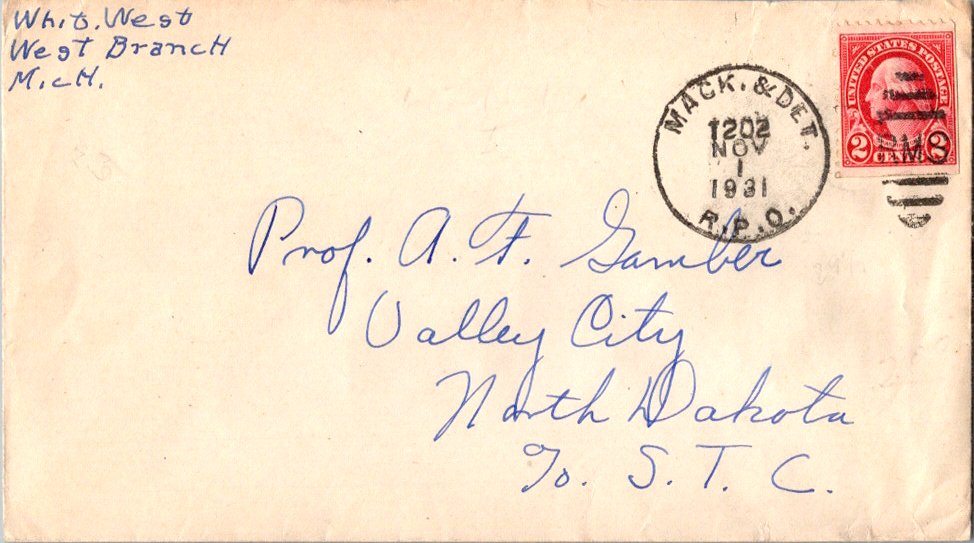 Whit. West
West Branch
Mich.
MACK. & DET.
T202
NOV
1
1931
R.P.O.
UNITED STATES POSTAGE
2 CENTS 2
RMS
Prof. A. F. Gamber
Valley City
North Dakota
To. S. T. C.